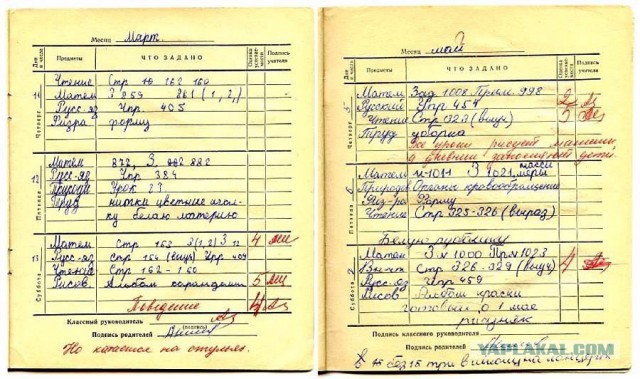 Месяц Март
Дни и числа Предметы ЧТО ЗАДАНО Оценка успеваемости Подпись учителя
Четверг
Чтение Стр 162 160
Матем З 259 261 (1, 2,)
Русс-яз Упр. 405
Физра форму
Пятница 12
Матем 872, З. 882
Русс-яз Упр 384
Природ Урок 23
Труд нитки цветные иголку белую материю
Суббота 13
Матем Стр 153 3(1,2) З 12 4
Русс-яз стр 154 (выуч) Упр 409
Чтение Стр 162-160
Рисов. Альбом карандаши 5
Поведение 4
Классный руководитель
(подпись)
Подпись родителей
Но катаешся на стульях.
Месяц май
Дни и числа Предметы ЧТО ЗАДАНО Оценка успеваемости Подпись учителя
Четверг 5
Матем Зад 1008 Прим 998 2
Русский Упр 454 5
Чтение Стр 323 (выуч)
Труд уборка
все уроки рисует машины
а дневник заполняет дети
Пятница 6
Матем N-1011 З 1021 меры массы
Природов Органы кровообращения
Физ-ра Форму
Чтение Стр 325-326 (выраз)
Белую рубашку
Суббота
Матем З N 1000 Прим 1023
Стр 326-329 (выуч) 4
Русс-яз Упр 459
Рисов Альбом краски
готовый о 1 мае
рисунок
Подпись классного руководителя
Подпись родителей
YAPLAKAL.COM